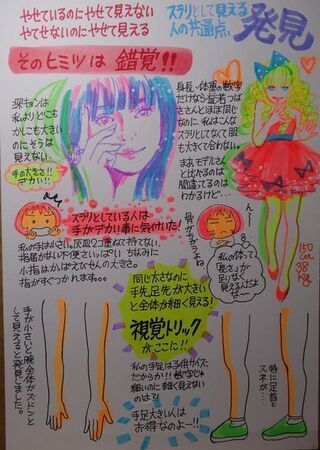 やせているのにやせて見えない
やせてないのにやせて見える
スラリとして見える
人の共通点、
発見
そのヒミツは 錯覚!!
深キョンは
私よりどこも
かしこも大きい
のにそうは
見えない
手の大きさ!!
デカい!!
身長、体重の数字
だけなら益若つば
ささんとほぼ同じ
なのに、私はこんな
スラリとしてなくて服
も大きくて合わない。
まぁモデルさん
と比べるのは
間違ってるのは
わかるけど…
150
cm
38
kg
スラリとしている人は
手がデカい事に気付いた!
私の手は小さい、灰皿2コ重ねて持てない
指届かない不便さいっぱい ちなみに
小指はかっぱえびせんの大きさ。
指がすぐつかれます。。。
んー
骨がちがうよね
私の体って
「長さ」が
足りなく
見えるんだよ
なー
同じ太さなのに
手先、足先が大きい
と全体が細く見える!
視覚トリック
がここに!!
私の手足は子供サイズ
だからか!! 数字じゃ
細いのに細く見えない
のは?!
手足大きい人は
お得なのよー!!
手が小さいと腕全体がズドンと
して見えると発見しました。
特に足首と
スネが…